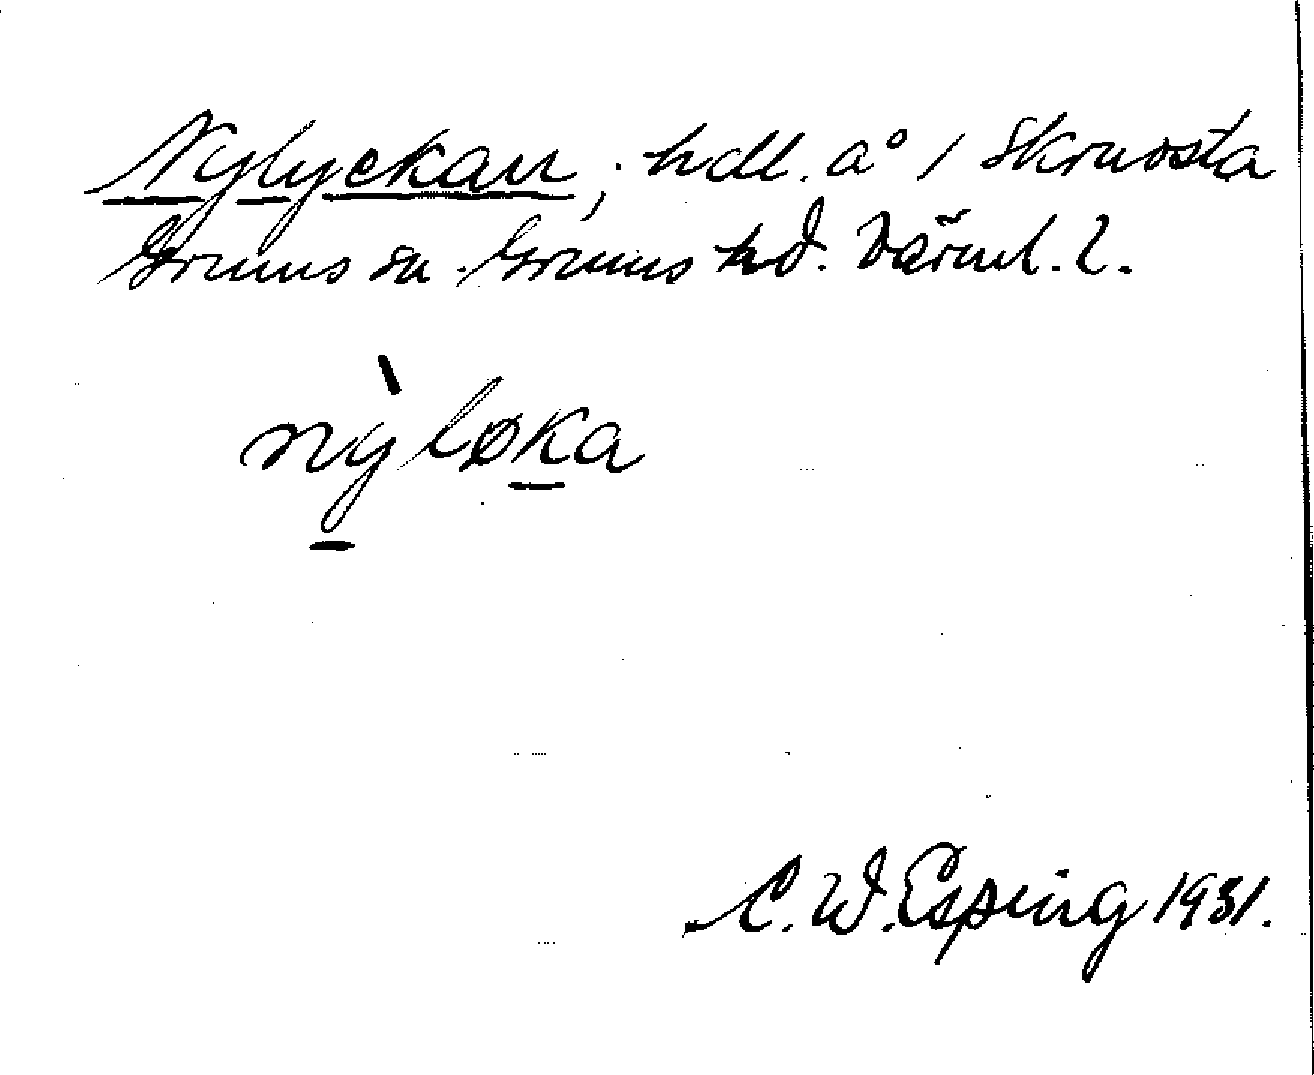 Nylyckan, hdl. å 1 Skruvsta
Grums sn. Grums hd. Värml. l.
nỳløka
C. W. Esping 1931.